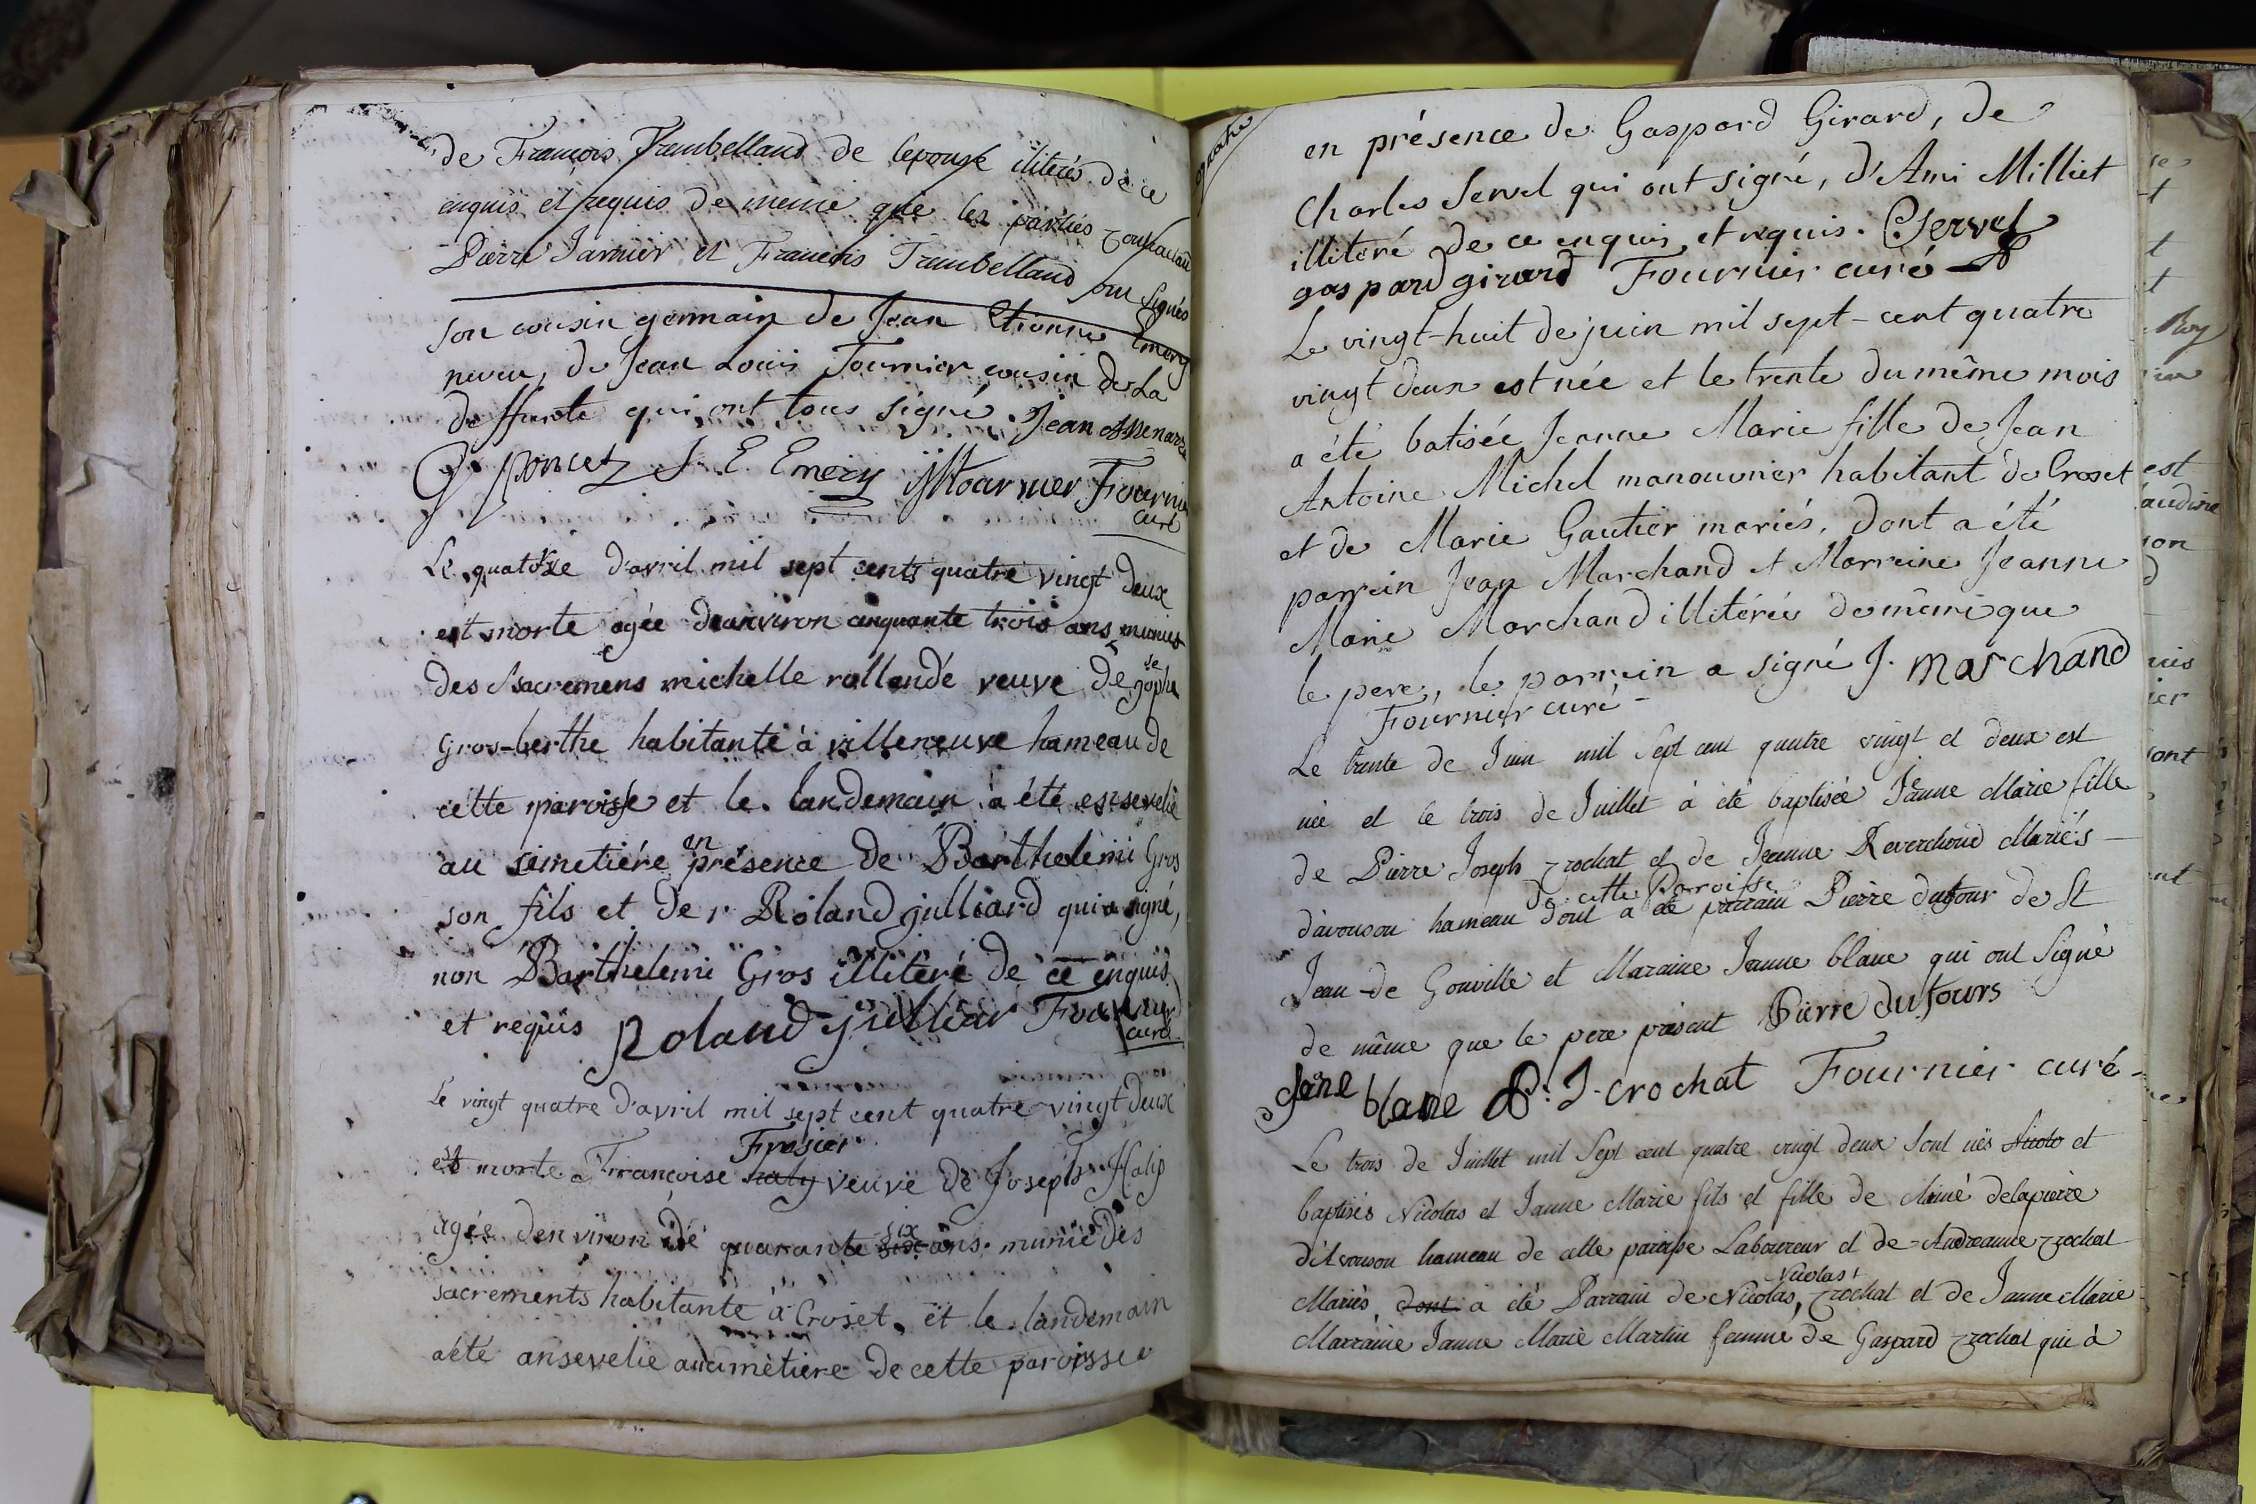 de François Trambelland de lepouse iliterés de ce
enquis et requis de meme que les parties
Pierre Jarnier et François Trambelland ont signés
son cousin germain de Jean Etienne Emery
neveu, de Jean Louis Fournier cousin de La
deffunte qui ont tous signé. Jean
poncet J. E. Emery Fournier Fournier
curé
Le quatorze d'avril mil sept cents quatre vingt deux
est morte agée denviron cinquante trois ans munies
des Sacremens michelle rollande veuve de josephe
Gros-berthe habitante à villeneuve hameau de
cétte paroisse et le landemain a été ensevelie
au simetiére en présence de Barthelemi Gros
son fils et de r Roland julliard qui a signé,
non Barthelemi Gros illiteré de ce enquis
et requis Roland julliar Fournier
curé
Le vingt quatre d'avril mil sept cent quatre vingt deux
est morte Françoise Frasier haly veuve de Joseph Haly
agée denviron de quarante six ans munie des
sacrements habitante à Croset, et le landemain
a été ansevelie au cimètiere de cette paroisse
quatre
en présence de Gaspard Girard, de
Charles Servel qui ont signé, d'Ami Milliet
illitéré de ce enquis et requis. C Servel
gaspard girard Fournier curé
Le vingt-huit de juin mil sept-cent quatre
vingt deux est née et le trente du même mois
a été batisée Jeanne Marie fille de Jean
Antoine Michel manouvrier habitant de Croset
et de Marie Gautier mariés, dont a été
parrein Jean Marchand et Marreine Jeanne
Marie Marchand illitérés de même que
le pere, le parrein a signé J. marchand
Fournier curé
Le trente de Juin mil Sept cent quatre vingt et deux est
née et le trois de Juillet à été baptisée Jeanne Marie fille
de Pierre Joseph Crochat et de Jeanne Reverchond Mariés
d'avouson hameau de cette Paroisse dont a été parrain Pierre dufour de St
Jean de Gonville et Maraine Jeanne blanc qui ont Signé
de même que le pere présent Pierre dufours
Jene blanc P. J. crochat Fournier curé
Le trois de Juillet mil Sept cent quatre vingt deux Sont nés Nicola et
baptisés Nicolas et Janne Marie fils et fille de Aimé delapierre
d'Avouson hameau de cette paroisse Laboureur et de Andreanne Crochat
Mariés, dont a été Parrain de Nicolas, Nicolas Crochat et de Janne Marie
Marraine Janne Marie Martin femme de Gaspard Crochat qui à